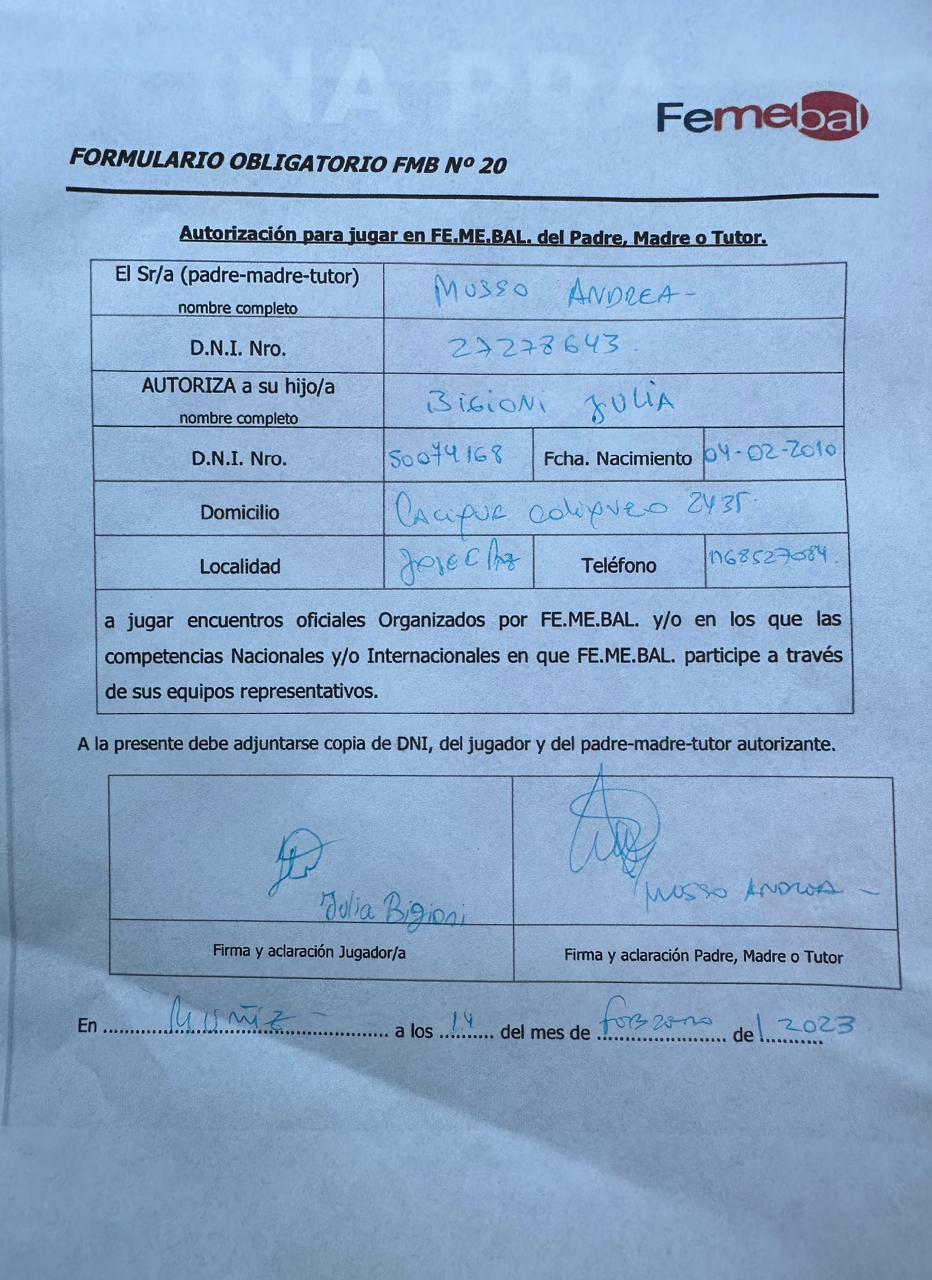 Femebal
FORMULARIO OBLIGATORIO FMB Nº 20
Autorización para jugar en FE.ME.BAL. del Padre, Madre o Tutor.
El Sr/a (padre-madre-tutor) MUSSO ANDREA-
nombre completo
D.N.I. Nro. 27278643
AUTORIZA a su hijo/a BIGIONI JULIA
nombre completo
D.N.I. Nro. 50074168 Fcha. Nacimiento 04-02-2010
Domicilio 2435
Localidad JOSE C PAZ Teléfono 1168527084
a jugar encuentros oficiales Organizados por FE.ME.BAL. y/o en los que las
competencias Nacionales y/o Internacionales en que FE.ME.BAL. participe a través
de sus equipos representativos.
A la presente debe adjuntarse copia de DNI, del jugador y del padre-madre-tutor autorizante.
Julia Bigioni
MUSSO ANDREA -
Firma y aclaración Jugador/a
Firma y aclaración Padre, Madre o Tutor
En MUÑIZ - a los 14 del mes de febrero de 2023